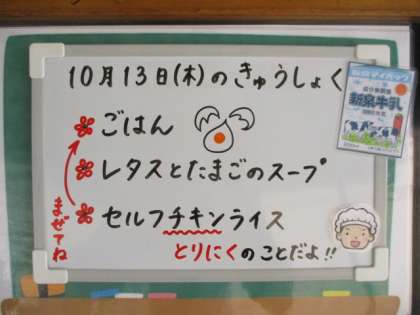 10月13日(木)のきゅうしょく
ごはん
レタスとたまごのスープ
セルフチキンライス
とりにくのことだよ!!
まぜてね
牛乳